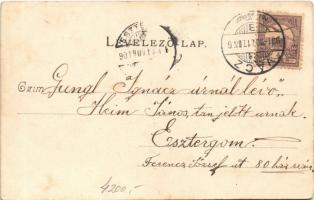 LEVELEZŐ-LAP.
Czim: Gungl Ignácz úrnál lévő
Heim János, tan jelölt urnak.
Esztergom.
Ferencz József ut 80 ház szám
4200,-